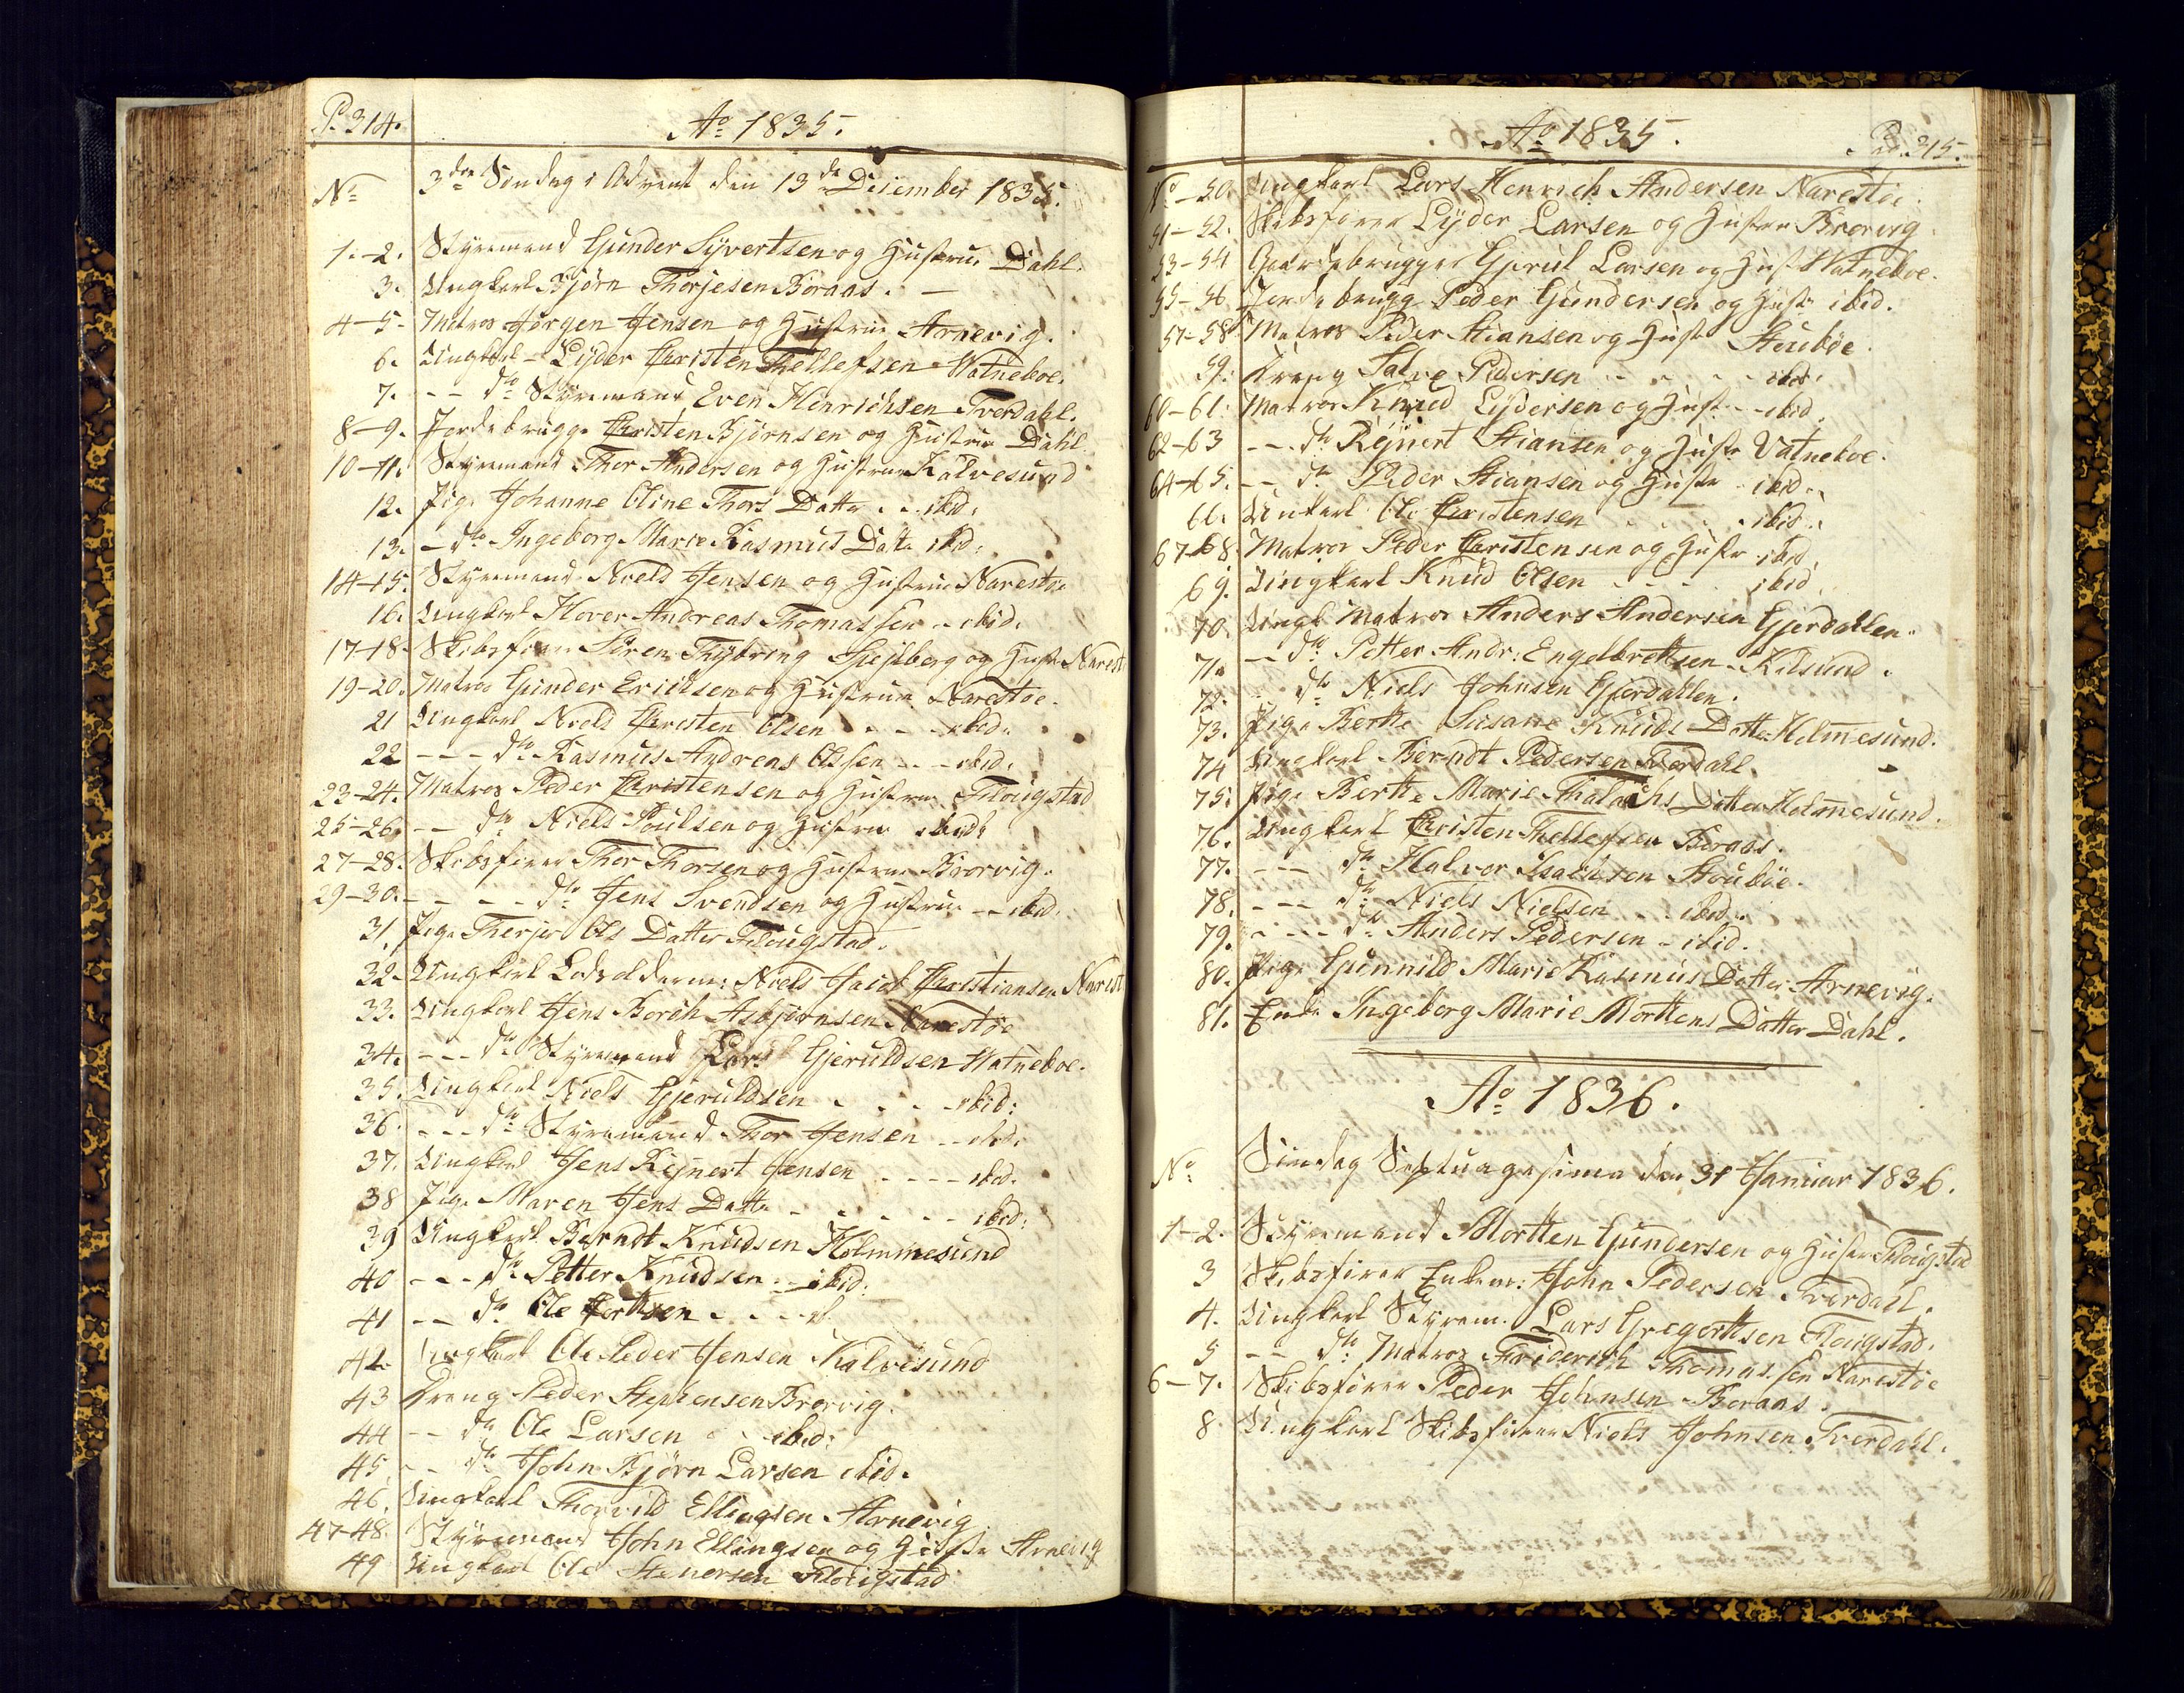 P. 314.
Ao 1835.
No 3die Søndag i Advent den 13de December 1835.
1.-2. Styrmand Gunder Syvertsen og Hustrue Dahl.
3. Ungkarl Bjørn Thorjesen Boraas. -
4-5. Matros Jørgen Jensen og Hustrue Arnevig.
6. Ungkarl - Lyder Christen Thellefsen Watneboe.
7. -- do Styrmand Even Henrichsen Tverdahl.
8-9. Jordebrugge Christen Bjørnsen og Hustrue Dahl.
10-11. Styrmand Thor Andersen og Hustrue Kalvesund
12. Pige Johanne Oline Thors Datter .. ibid.
13. - do Ingeborg Marie Rasmus Datte ibid.
14-15. Styrmand Niels Jensen og Hustrue Narestøe
16. Ungkarl Hover Andreas Thomassen .. ibid.
17-18. Skibsfører Søren Thybring Spejlberg og Hust Narest
19-20. Matros Gunder Erichsen og Hustrue Narestøe.
21 Ungkarl Niels Christen Olsen - - - ibid.
22 --- do Rasmus Andreas Olssen --- ibid.
23-24. Matros Peder Christensen og Hustrue Flougstad
25-26. -- do Niels Poulsen og Hustrue ibid.
27-28. Skibsfører Thor Thorsen og Hustrue Krorvig.
29-30. - - - - do Jens Svendsen og Hustrue -- ibid.
31. Pige Therjer Ols Datter Flougstad.
32. Ungkarl Lodsolderm: Niels Jacob Christiansen Narest
33. Ungkarl Jens Borch Asbjørnsen Narestøe
34. --- do Styrmand Lars Gjeruldsen Watneboe.
35. Ungkarl Niels Gjeruldsen - - - - ibid:
36. --- do Styrmand Thor Jensen -- ibid.
37. Ungkarl Jens Rejnert Jensen - - - - ibid.
38 Pige Maren Jens Datte - - - - - ibid:
39 Ungkarl Berndt Knudsen Holmmesund
40 --- do Petter Knudsen -- ibid:
41 -- do Ole
42 Ungkarl Ole Peder Jensen Kalvesund
43 Dreng Peder Stephensen Krorvig.
44 -- do Ole Larsen - - ibid:
45. -- do John Bjørn Larsen ibid.
46. Ungkarl Thorvild Ellingsen Arnevig
47-48. Styrmand John Ellingsen og Hustr Arnevig
49 Ungkarl Ole Stenersen Flougstad
Ao 1835.
Pag. 315.
No - 50. Ungkarl Lars Henrich Andersen Narestøe.
51-52. Skibsfører Lyder Larsen og Hustrue Krorvig.
53-54 Gaardebrugger Gjerul Larsen og Hust Watneboe.
55-56. Jordebrugg Peder Gundersen og Hustr ibid.
57-58 Matros Peder Stiansen og Hustr Stoubøe.
59. Dreng Salve Pedersen - - - - ibid.
60-61. Matros Knud Lydersen og Hust -- ibid.
62-63 -- do Rejnert Stiansen og Hustr Vatneboe.
64-65. -- do Peder Stiansen og Hustr . ibid.
66. Unkarl Ole Christensen . . . . ibid.
67-68. Matros Peder Christensen og Hustr ibid
69. Ungkarl Knud Olsen - - - - ibid
70. Ungk Matros Anders Andersen Gjerdallen.
71. -- do Petter Andr: Engelbrettsen Kilsund.
72. - do Niels Johnsen Gjerdahlen.
73. Pige Berthe Susane Knuds Datte Holmesund.
74 Ungkarl Berndt Pedersen Tverdahl.
75. Pige Berthe Marie Thalachs Datter Holmesund.
76. Ungkarl Christen Thellefsen Boraas.
77. --- do Halvor Isachsen Stoubøe.
78. --- do Niels Nielsen - - ibid.
79. ---- do Anders Pedersen - ibid.
80. Pige Gunnild Marie Rasmus Datter Arnevig.
81. Enke Ingeborg Marie Morttens Datter Dahl.
Ao 1836.
No Søndag Septuagesima den 31 Januar 1836.
1-2. Styrmand Mortten Gundersen og Hustr Flougstad
3 Skibsfører Enkem: John Pedersen Tverdahl.
4. Ungkarl Styrm. Lars Gregertsen Flougstad.
5 -- do Matros Friderich Thomassen Narestøe
6-7. Skibsfører Peder Johnsen Boraas.
8. Ungkarl Skibsfører Niels Johnsen Tverdahl.